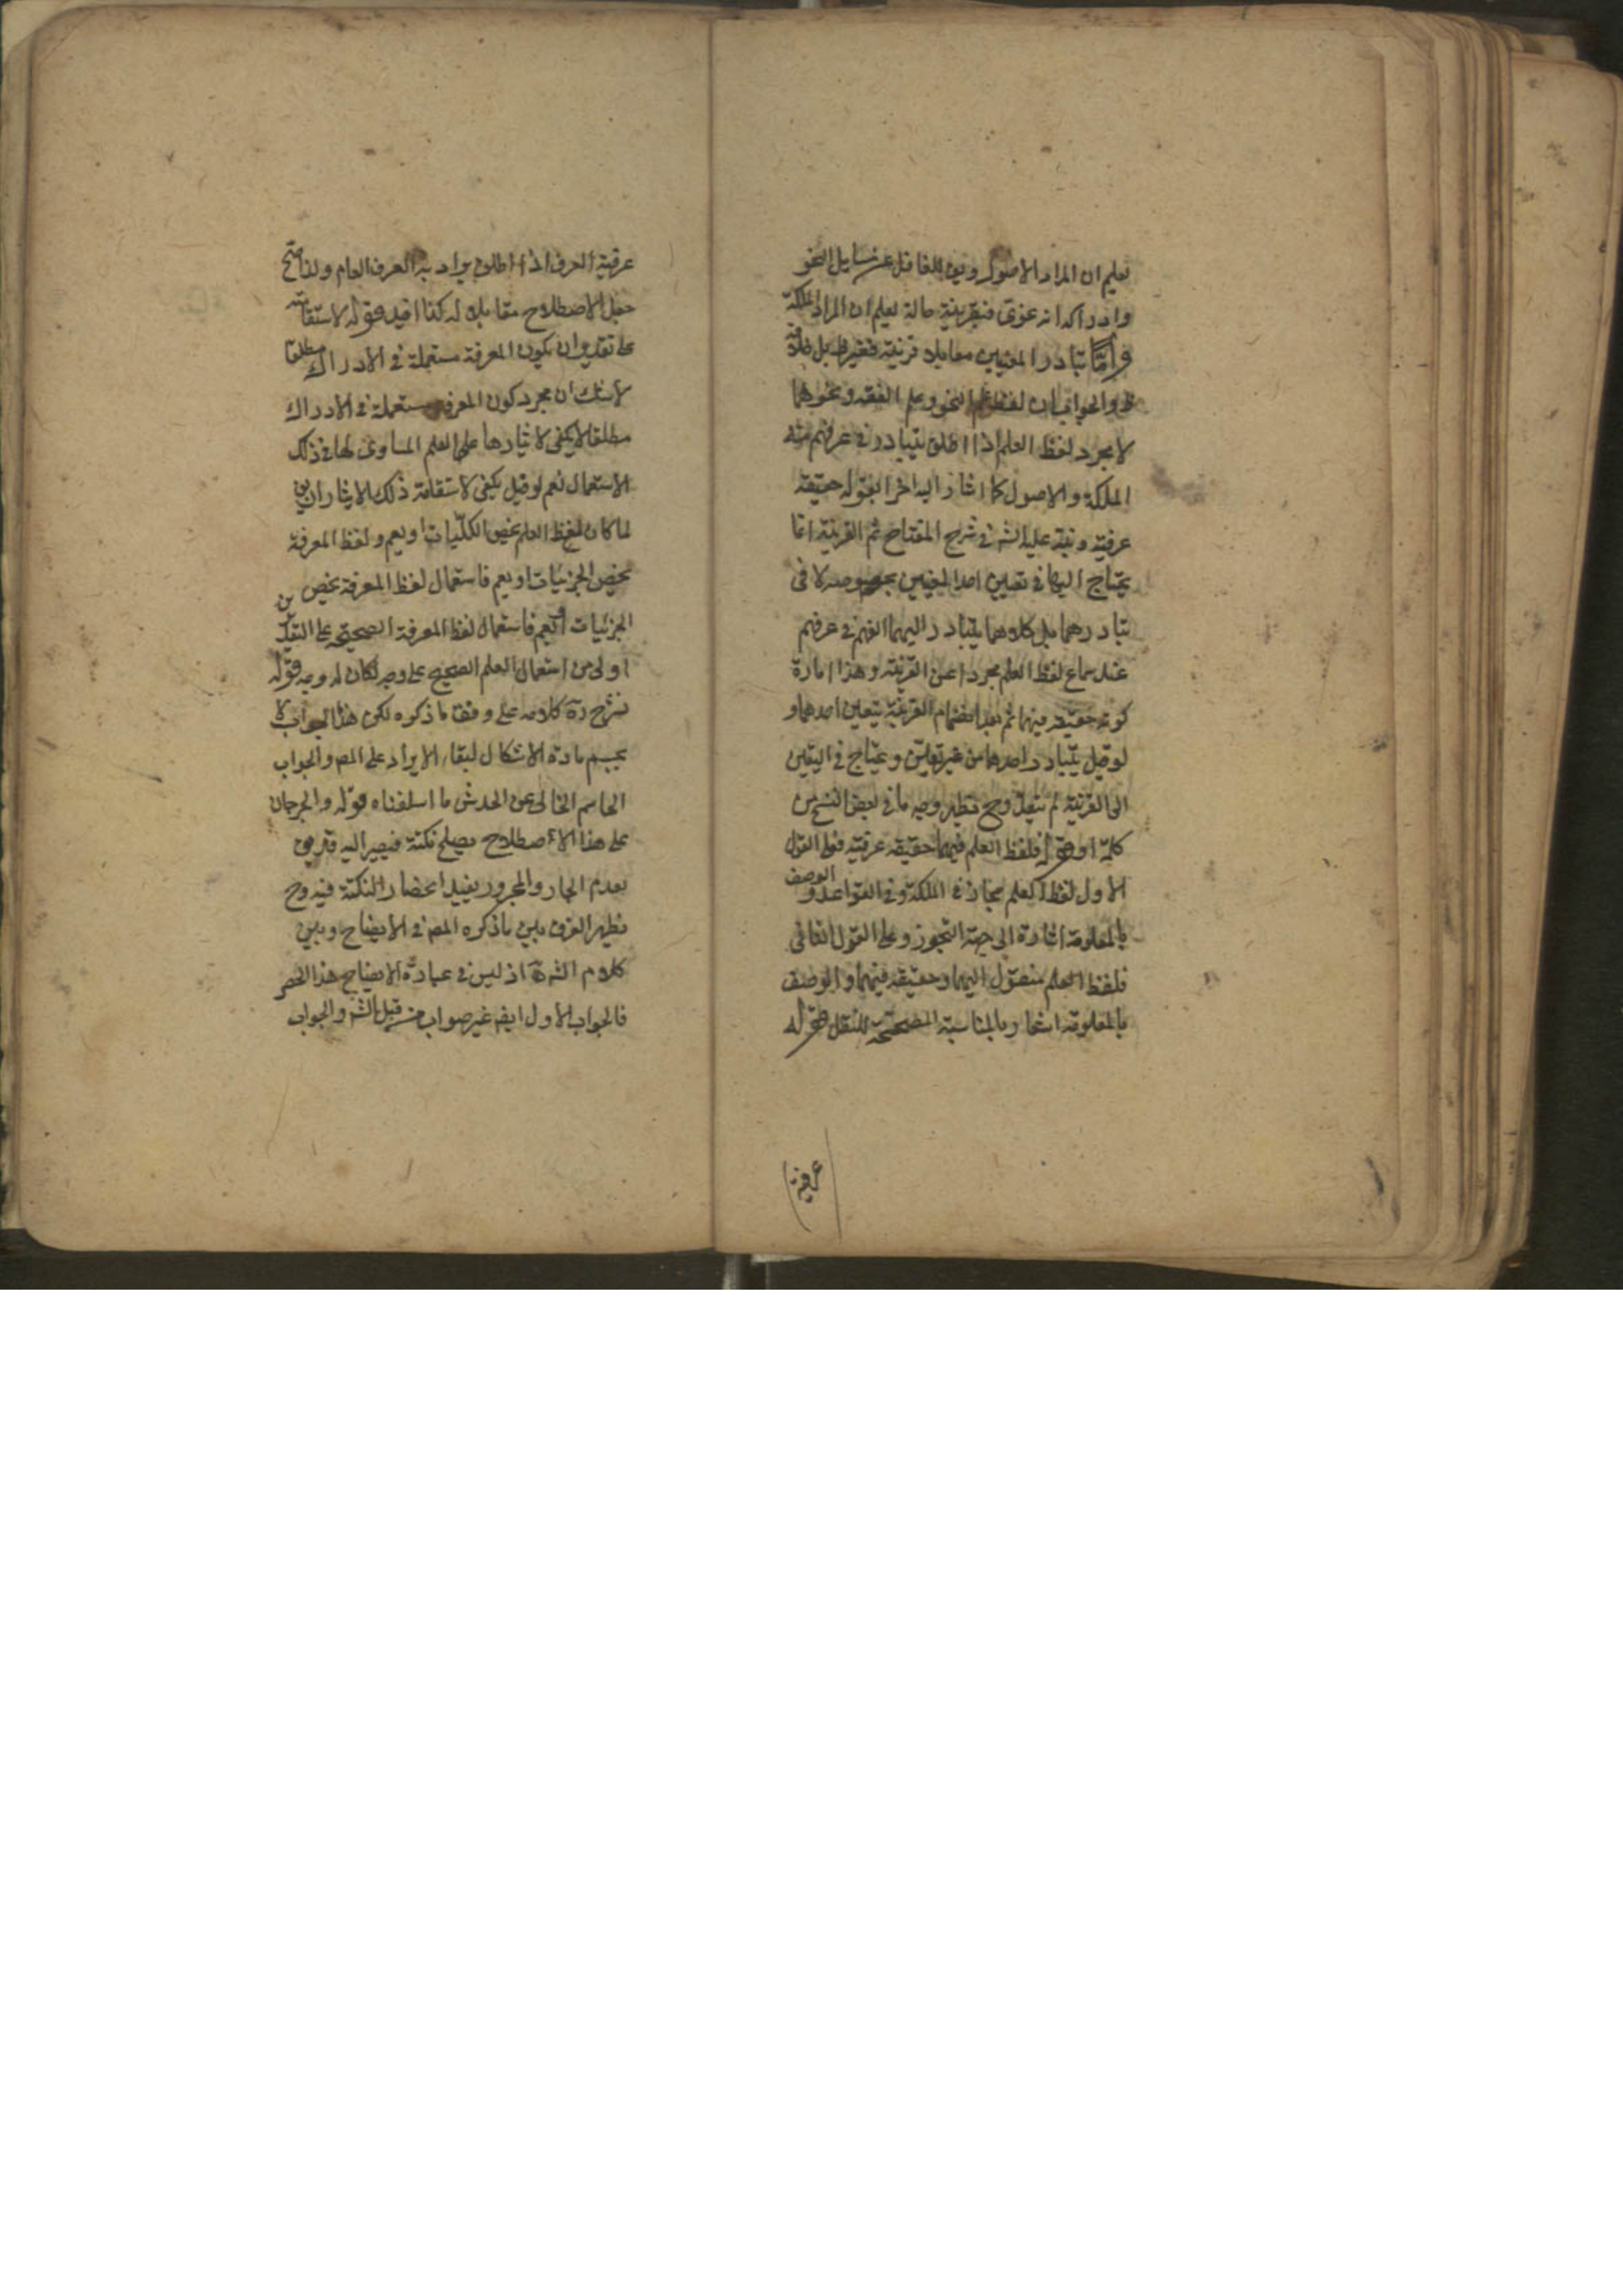 يعلم ان المراد الاصول ويق للغافل عن مسايل النحو
وادراكه انه نحوى فبقرينة حالة يعلم ان المراد الملكة
واما تبادر المعنيين معا بلا قرينة فغير ظ بل خلافه
ظ والجواب ان لفظ علم النحو وعلم الفقه ونحوهما
لا مجرد لفظ العلم اذا اطلق يتبادر في عرفهم منه
الملكة والاصول كما اشار اليه اخرا بقوله حقيقة
عرفية ونبه عليه الش في شرح المفتاح ثم القرينة انما
يحتاج اليها في تعيين احد المعنيين بخصوصه لا في
تبادرهما بل كلاهما يتبادر اليهما الفهم في عرفهم
عند سماع لفظ العلم مجردا عن القرينة وهذا امارة
كونه حقيقة فيهما ثم بعد انضمام القرينة يتعين احدهما و
لو قيل يتبادر احدهما من غير تعين ويحتاج في التعين
الى القرينة لم يبعد وح يظهر وجه ما في بعض النسخ من
كلمة او قوله فلفظ العلم فيهما حقيقة عرفية فعلى القول
الاول لفظ العلم مجاز في الملكة وفي القواعد والوصف
بالمعلومة اشارة الى جهة التجوز وعلى القول الثاني
فلفظ العلم منقول اليهما وحقيقة فيهما والوصف
بالمعلومة اشعار بالمناسبة المصححة للنقل قوله
عرفية
عرفية العرف اذا اطلق يراد به العرف العام ولذا صح
جعل الاصطلاح مقابلا له كذا افيد قوله لاستقامته
على تقدير ان يكون المعرفة مستعملة في الادراك مطلقا
لا شك ان مجرد كون المعرفة مستعملة في الادراك
مطلقا لا يكفي لايثارها على العلم المساوى لها في ذلك
الاستعمال نعم لو قيل يكفي لاستقامة ذلك الايثار ان يق
لما كان لفظ العلم يخص الكليات او يعم ولفظ المعرفة
يخص الجزئيات او يعم فاستعمال لفظ المعرفة يخص
الجزئيات او يعم فاستعمال لفظ المعرفة الصحيحة على التقديرين
اولى من استعمال العلم الصحيح على وجه لكان له وجه قوله
نشرح كلامه على وفق ما ذكره لكن هذا الجواب لا
يحسم مادة الاشكال لبقاء الايراد على المص والجواب
الحاسم الخالى عن الخدش ما اسلفناه قوله والجرجان
على هذا الاصطلاح يصلح نكتة فيصير اليه
بعدم الجار والمجرور يفيد انحصار النكتة فيه وح
يظهر الفرق بين ما ذكره المص في الايضاح وبين
كلام الش اذ ليس في عبارة الايضاح هذا الحصر
فالجواب الاول ايض غير صواب من قبل الش والجواب